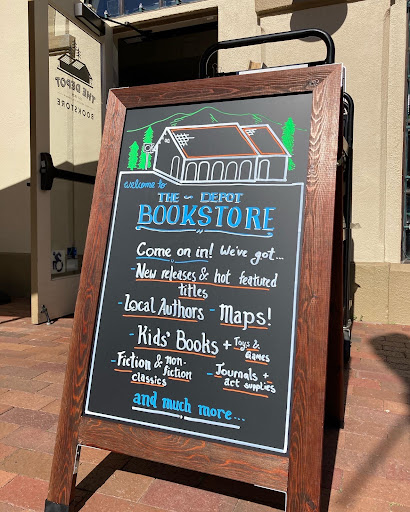 THE DEPOT
BOOKSTORE
welcome to
THE ~ DEPOT
BOOKSTORE
Come on in! We've got...
- New releases & hot featured
titles
- Local Authors - Maps!
- Kids' Books + Toys &
Games
- Fiction & non-
fiction
classics
- Journals +
art supplies
and much more...